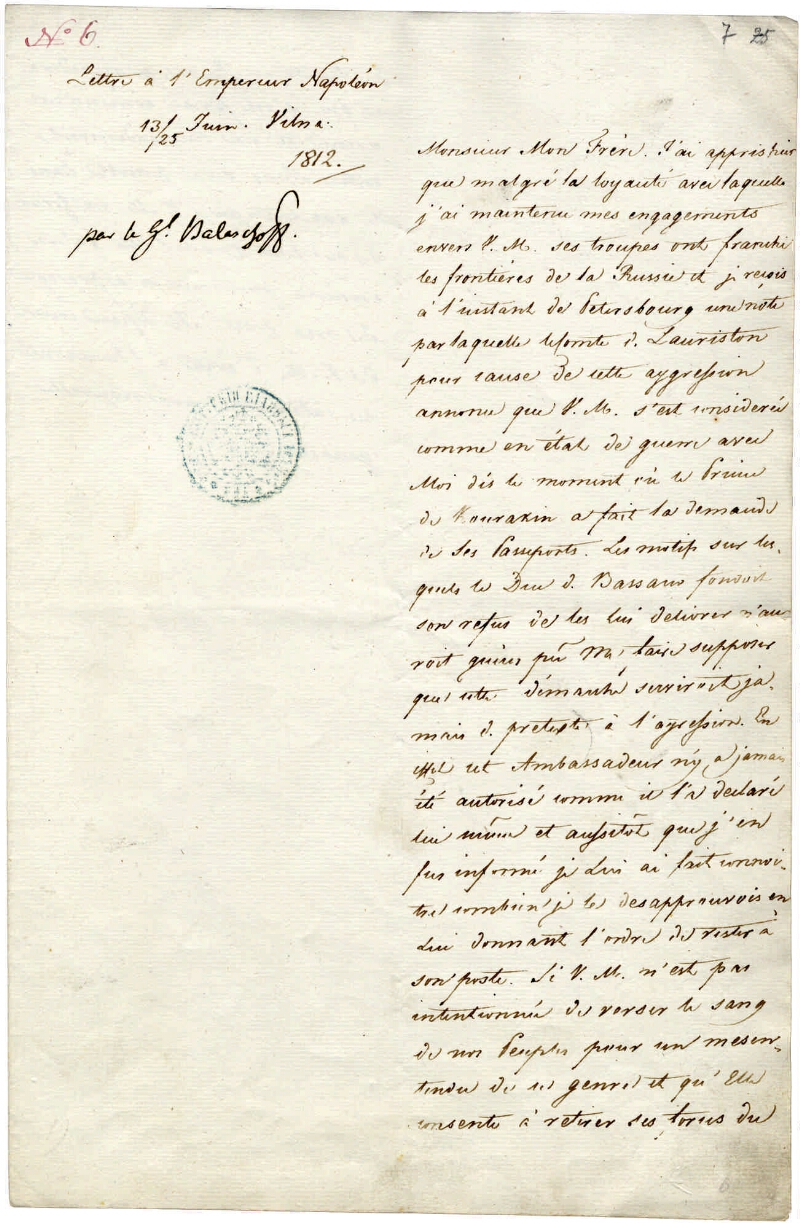 Nº 6.
7 25
Lettre à l'Empereur Napoléon
13/25 Juin. Vilna.
1812.
par le Gl. Balaschoff.
Monsieur Mon Frère. J'ai appris hier
que malgré la loyauté avec laquelle
j'ai maintenu mes engagements
envers V. M. ses troupes ont franchi
les frontières de la Russie et je reçois
à l'instant de Petersbourg une note
par laquelle le Comte d. Lauriston
pour cause de cette aggression
annonce que V. M. s'est considerée
comme en état de guerre avec
Moi dès le moment où le Prince
de Kourakin a fait la demande
de ses Passeports. Les motifs sur les-
quels le Duc d. Bassano fondoit
son refus de les lui delivrer n'au-
roit guères pû Me faire supposer
que cette démarche serviroit ja-
mais d. pretexte à l'agression. En
effet cet Ambassadeur n'y a jamais
été autorisé comme il l'a declaré
lui même et aussitôt que j'en
fus informé je Lui ai fait connoi-
tre combien je le desapprouvois en
Lui donnant l'ordre de rester à
son poste. Si V. M. n'est pas
intentionnée de verser le sang
de nos Peuples pour un mesen-
tendu de ce genre et qu'Elle
consente à retirer ses forces du